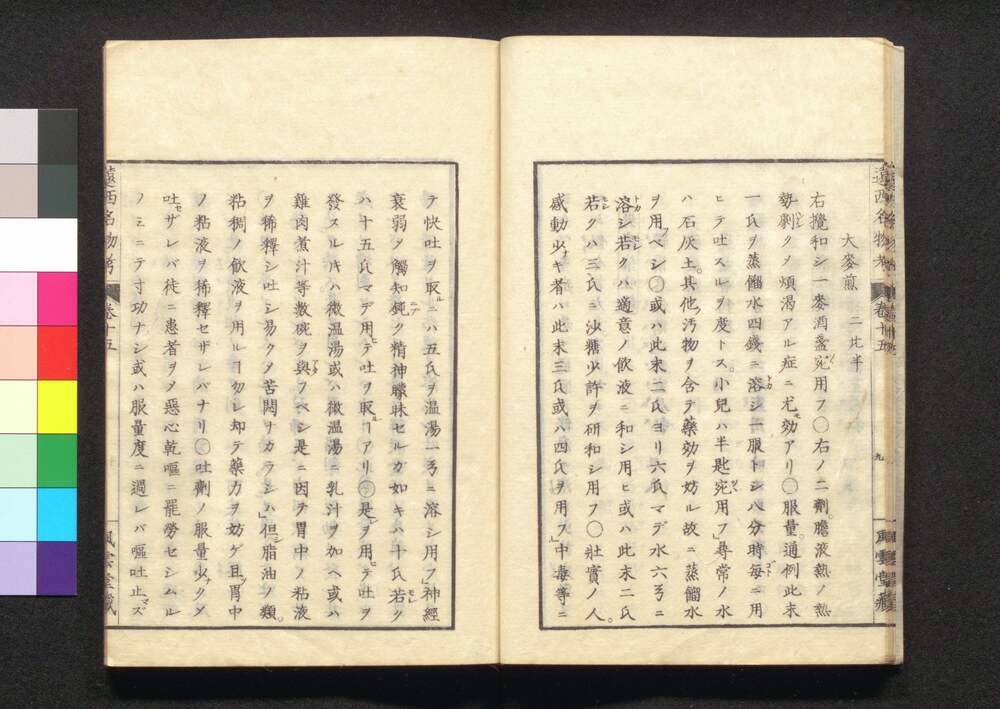 大麥煎 二比半
右攪和シ一麥酒盞宛用フ〇右ノ二劑膽液熱ノ熱
勢劇クメ煩渴アル症ニ尤モ効アリ〇服量通例此末
一氏ヲ蒸餾水四錢ニ溶シ一服トシ八分時每ニ用
ヒテ吐スルヲ度トス。小兒ハ半匙宛用フ」尋常ノ水
ハ石灰土。其他汚物ヲ含テ藥効ヲ妨ル故ニ蒸餾水
ヲ用フベシ〇或ハ此末二氏ヨリ六氏マデ水六ゟニ
溶シ若クハ適意ノ飲液ニ和シ用ヒ或ハ此末二氏
若クハ三氏ニ沙糖少許ヲ研和シ用フ〇壯實ノ人。
感動少キ者ハ此末三氏或ハ四氏ヲ用フ」中毒等ニ
遠西名物考 卷十五 九 風雲堂藏
テ快吐ヲ取ルニハ五氏ヲ温湯一ゟニ溶シ用フ」神經
衰弱メ觸知鈍ク精神矇昧セルガ如キハ十氏若ク
ハ十五氏マデ用ヒテ吐ヲ取ルヿアリ〇是ヲ用ヒテ吐ヲ
發スルキハ微温湯或ハ微温湯ニ乳汁ヲ加ヘ或ハ
雞肉煮汁等數碗ヲ與フベシ是ニ因テ胃中ノ粘液
ヲ稀釋シ吐シ易クメ苦悶ナカラシム」但シ脂油ノ類。
粘稠ノ飲液ヲ用ルヿ勿レ却テ藥力ヲ妨ゲ且ツ胃中
ノ粘液ヲ稀釋セザレバナリ〇吐劑ノ服量少クメ
吐セザレバ徒ニ患者ヲメ惡心乾嘔ニ罷勞セシムル
ノミニテ寸功ナシ或ハ服量度ニ過レバ嘔吐止ズ
遠西名物考 卷十五 風雲堂藏